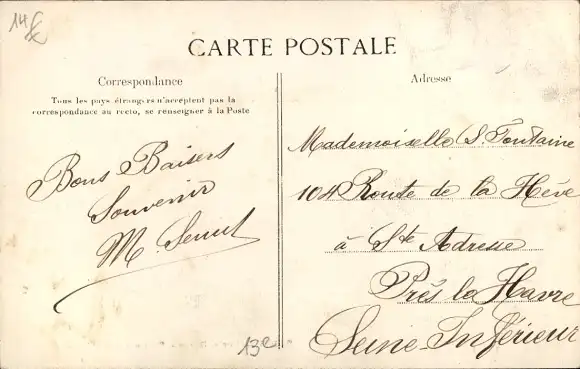 14€
CARTE POSTALE
Correspondance
Tous les pays étrangers n'acceptent pas la
correspondance au recto, se renseigner à la Poste
Bons Baisers
Souvenir
M.
Adresse
Mademoiselle S. Fontaine
104 Route de la Hève
à Ste Adresse
Près le Havre
Seine-Inférieur
13e